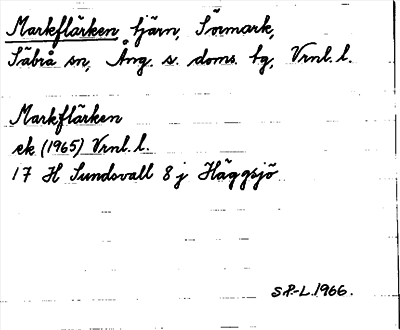 Markflärken, tjärn, Sörmark,
Säbrå sn, Ång. s. doms. tg, Vrnl. l.
Markflärken
ek (1965) Vrnl. l.
17 H Sundsvall 8 j Häggsjö
S.P.-L. 1966.